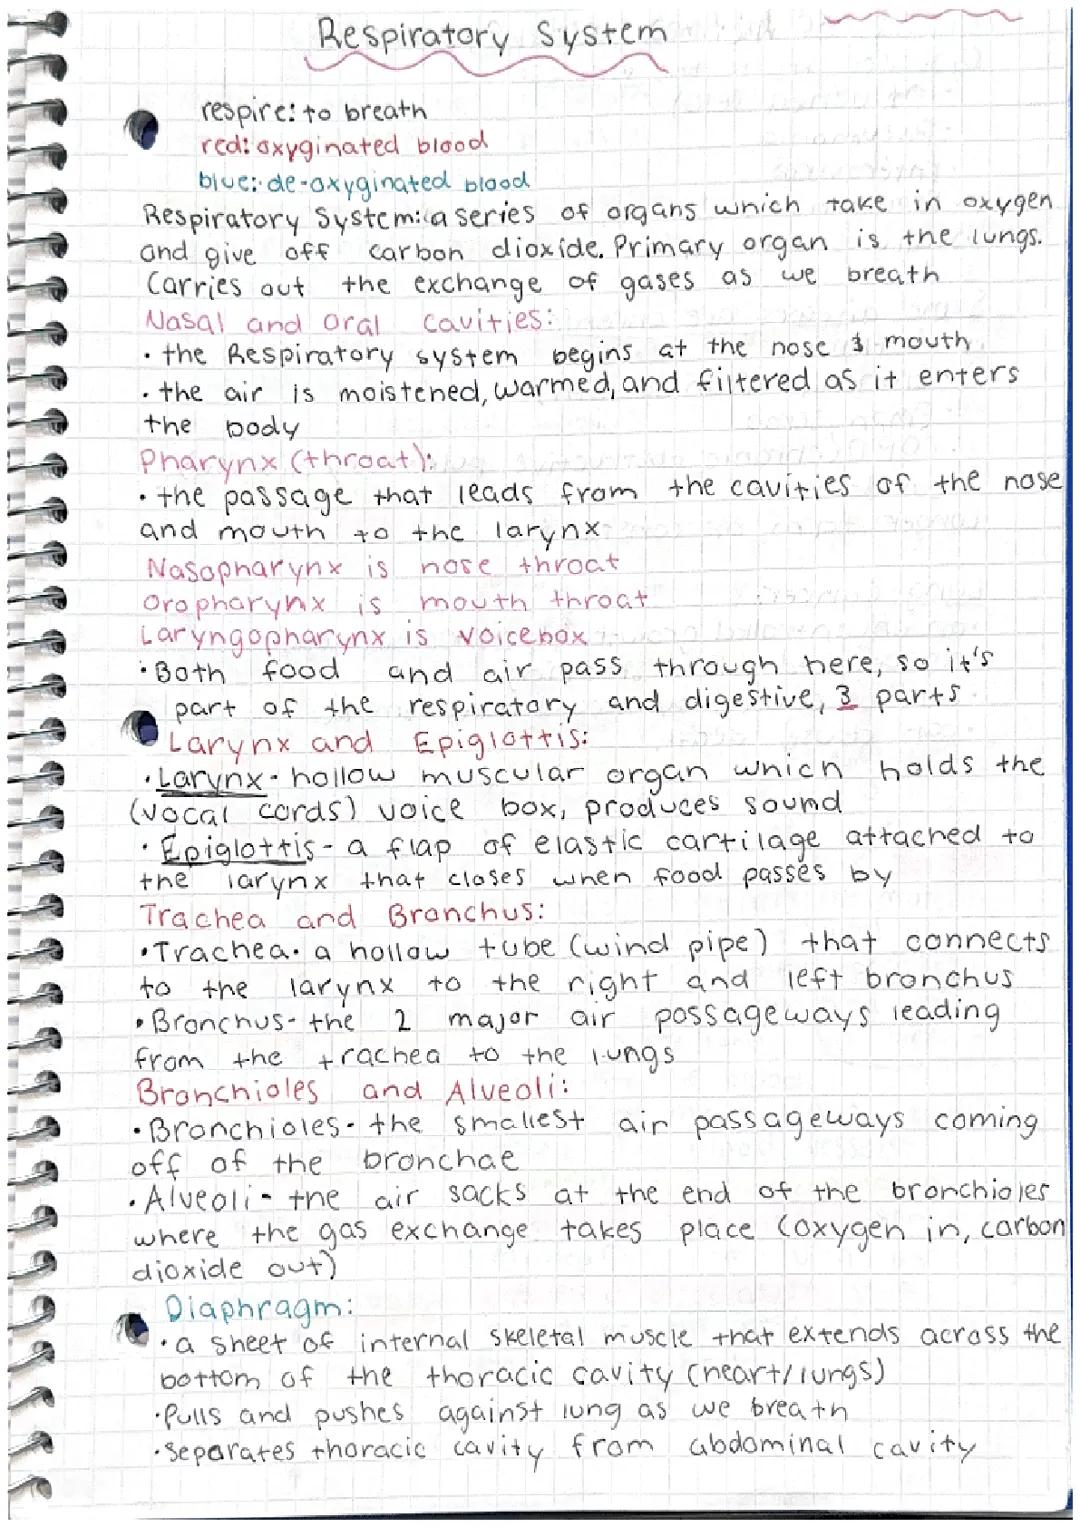 Respiratory System
respire: to breath
red: oxyginated blood
blue: de-oxyginated blood
Respiratory System: a series of organs which take in oxygen
and give off carbon dioxide. Primary organ is the lungs.
Carries out the exchange of gases as we breath
Nasal and oral cavities:
• the Respiratory system begins at the nose & mouth
• the air is moistened, warmed, and filtered as it enters
the body
Pharynx (throat):
• the passage that leads from the cavities of the nose
and mouth to the larynx
Nasopharynx is nose throat
Oropharynx is mouth throat
Laryngopharynx is voicebox
• Both food and air pass through here, so it's
part of the respiratory and digestive, 3 parts
Larynx and Epiglottis:
• Larynx- hollow muscular organ which holds the
(vocal cords) voice box, produces sound
• Epiglottis- a flap of elastic cartilage attached to
the larynx that closes when food passes by
Trachea and Bronchus:
• Trachea- a hollow tube (wind pipe) that connects
to the larynx to the right and left bronchus
• Bronchus- the 2 major air passageways leading
from the trachea to the lungs
Bronchioles and Alveoli:
• Bronchioles- the smallest air passageways coming
off of the bronchae
• Alveoli- the air sacks at the end of the bronchioles
where the gas exchange takes place (oxygen in, carbon
dioxide out)
Diaphragm:
• a sheet of internal skeletal muscle that extends across the
bottom of the thoracic cavity (heart/lungs)
• Pulls and pushes against lung as we breath
• Separates thoracic cavity from abdominal cavity